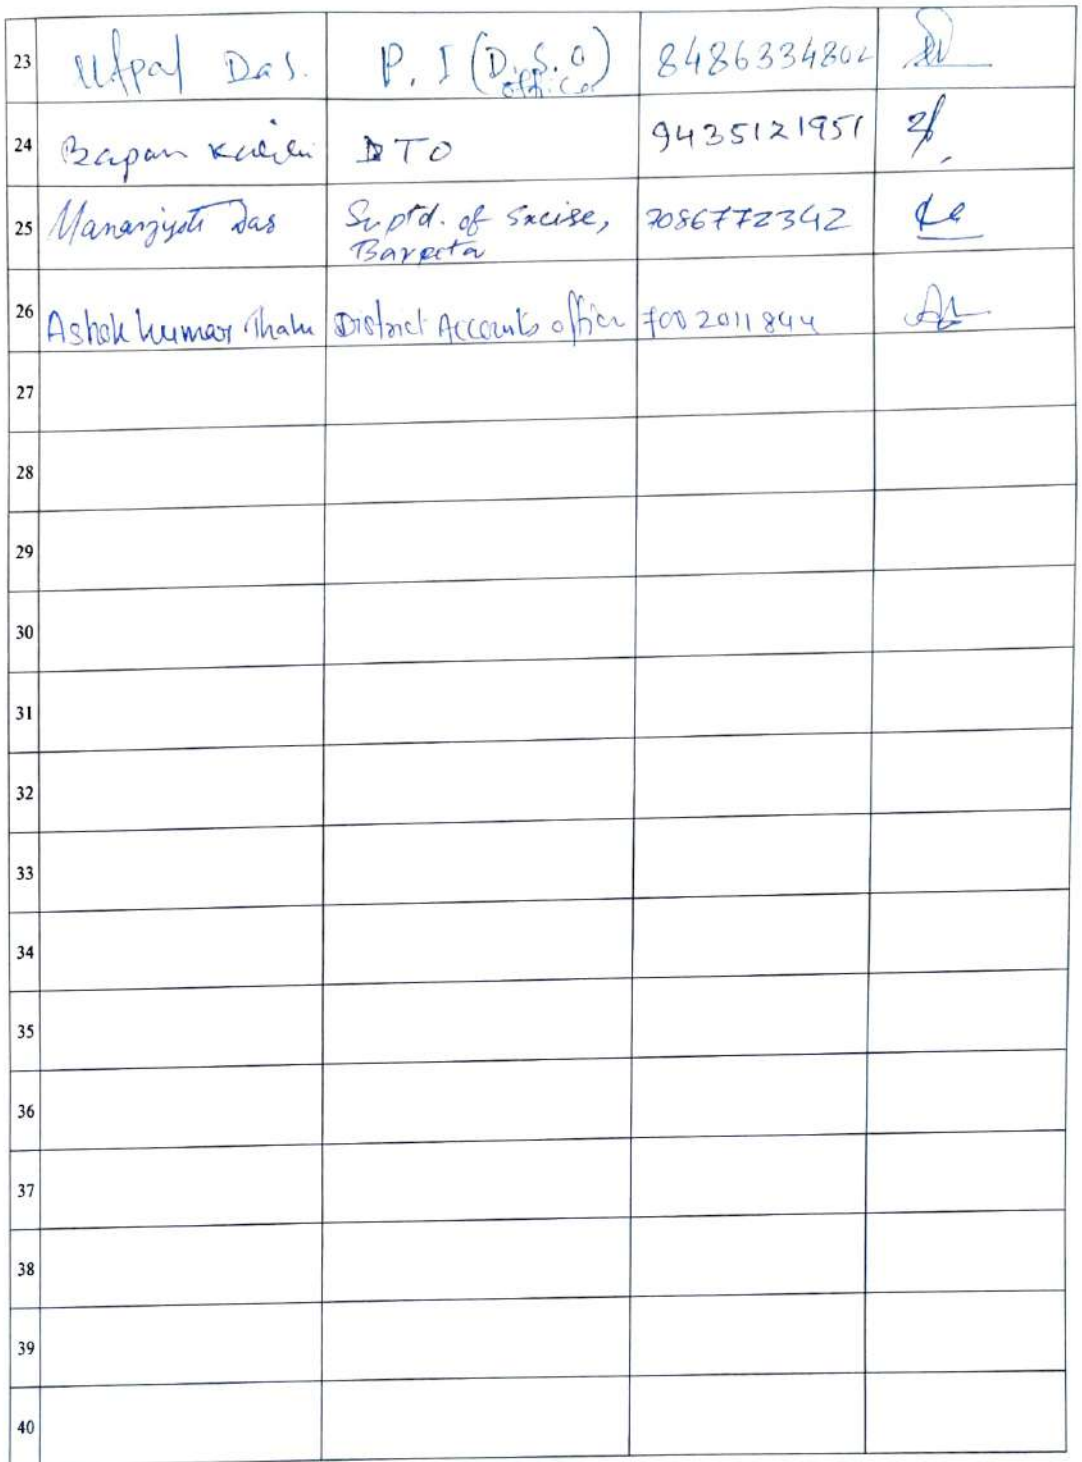 23 Utpal Das. P. I (D.S.O office) 8486334802
24 Bapan DTO 9435121951
25 Manasjyoti Das Suptd. of Excise, 7086772342
Barpeta
26 Ashok kumar District Accounts office 7002011844
27
28
29
30
31
32
33
34
35
36
37
38
39
40